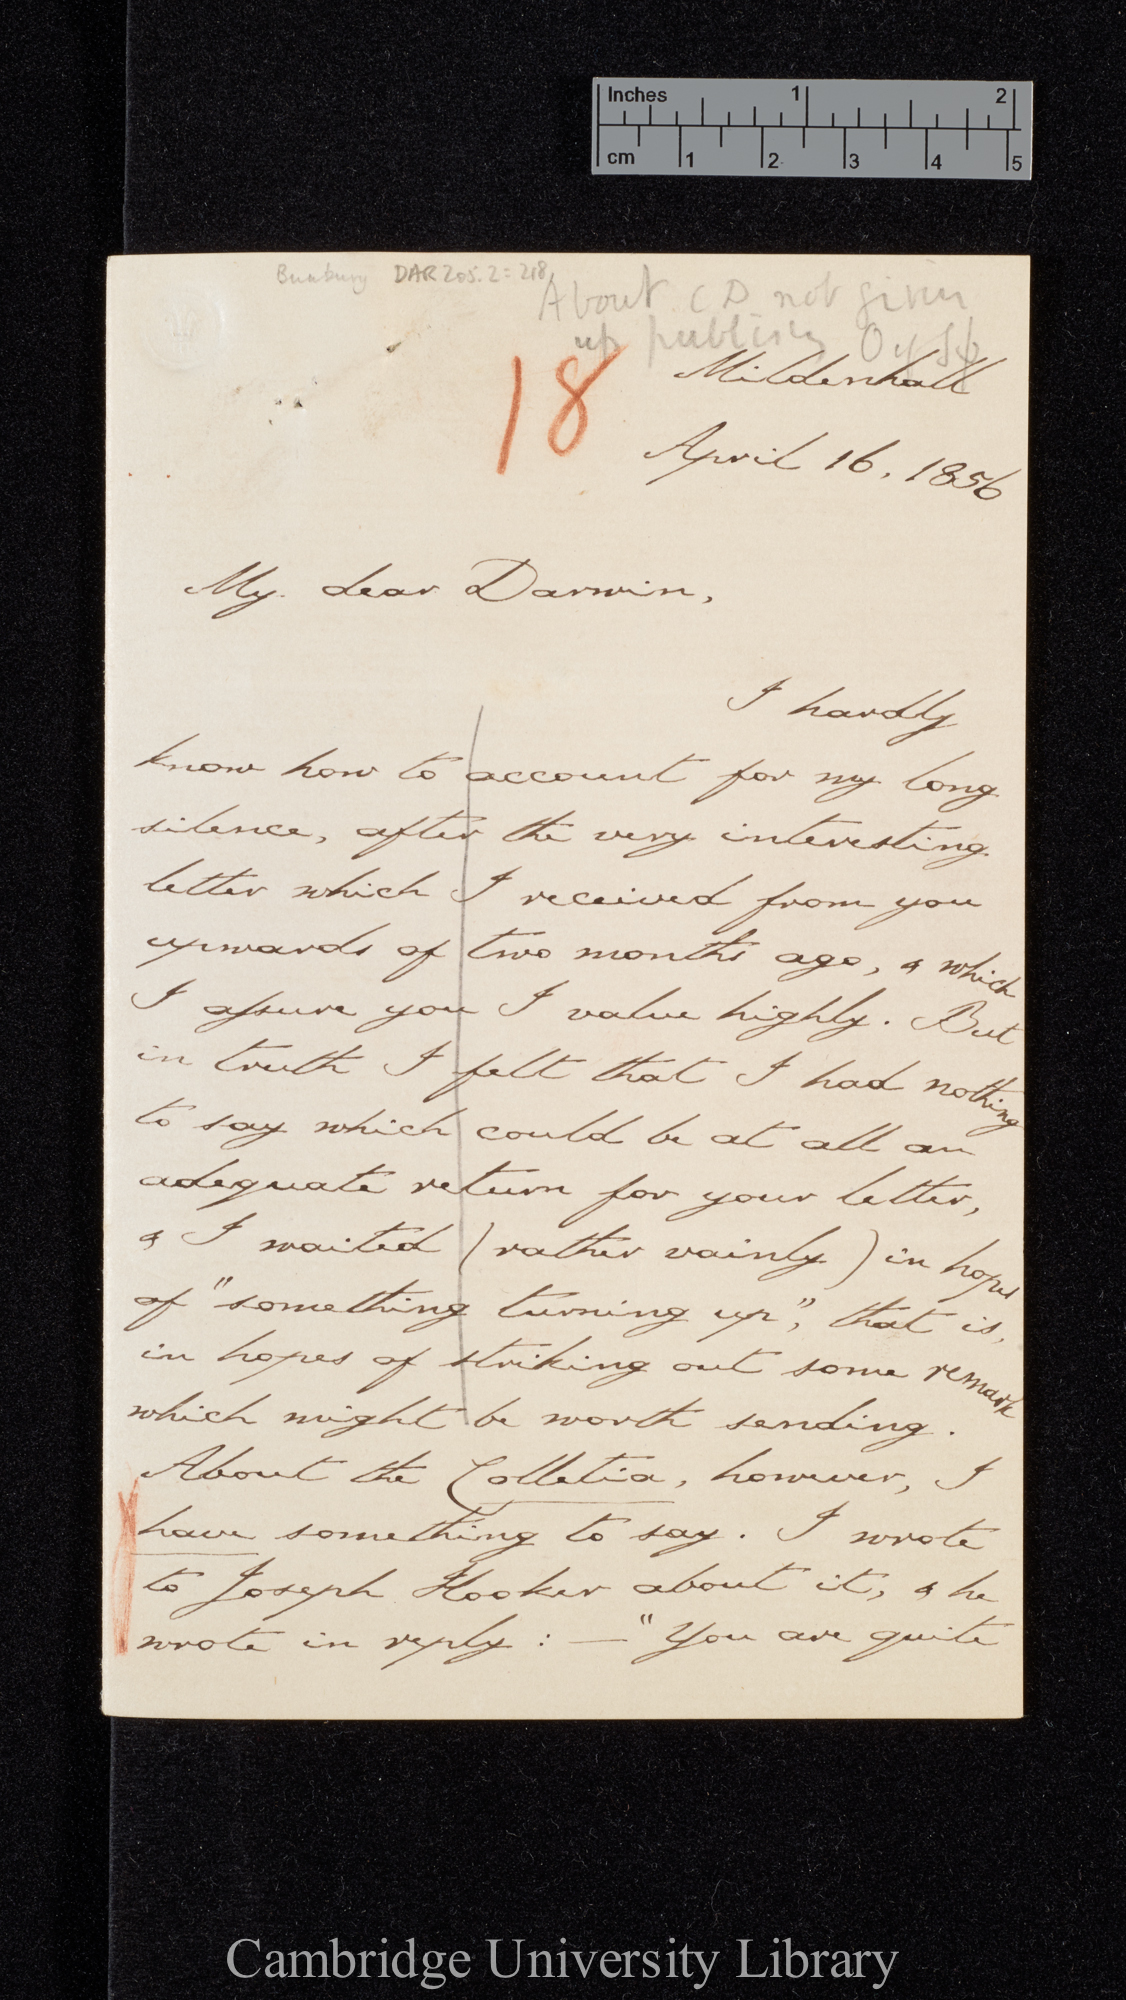 Inches 1 2
cm 1 2 3 4 5
Bunbury DAR 205.2: 218
About CD not given
up publishing O of Sp
18
Mildenhall
April 16, 1856
My dear Darwin,
I hardly
know how to account for my long
silence, after the very interesting
letter which I received from you
upwards of two months ago, & which
I assure you I value highly. But
in truth I felt that I had nothing
to say which could be at all an
adequate return for your letter,
& I waited (rather vainly) in hopes
of "something turning up", that is,
in hopes of striking out some remark
which might be worth sending.
About the Colletia, however, I
have something to say. I wrote
to Joseph Hooker about it, & he
wrote in reply: — "You are quite
Cambridge University Library